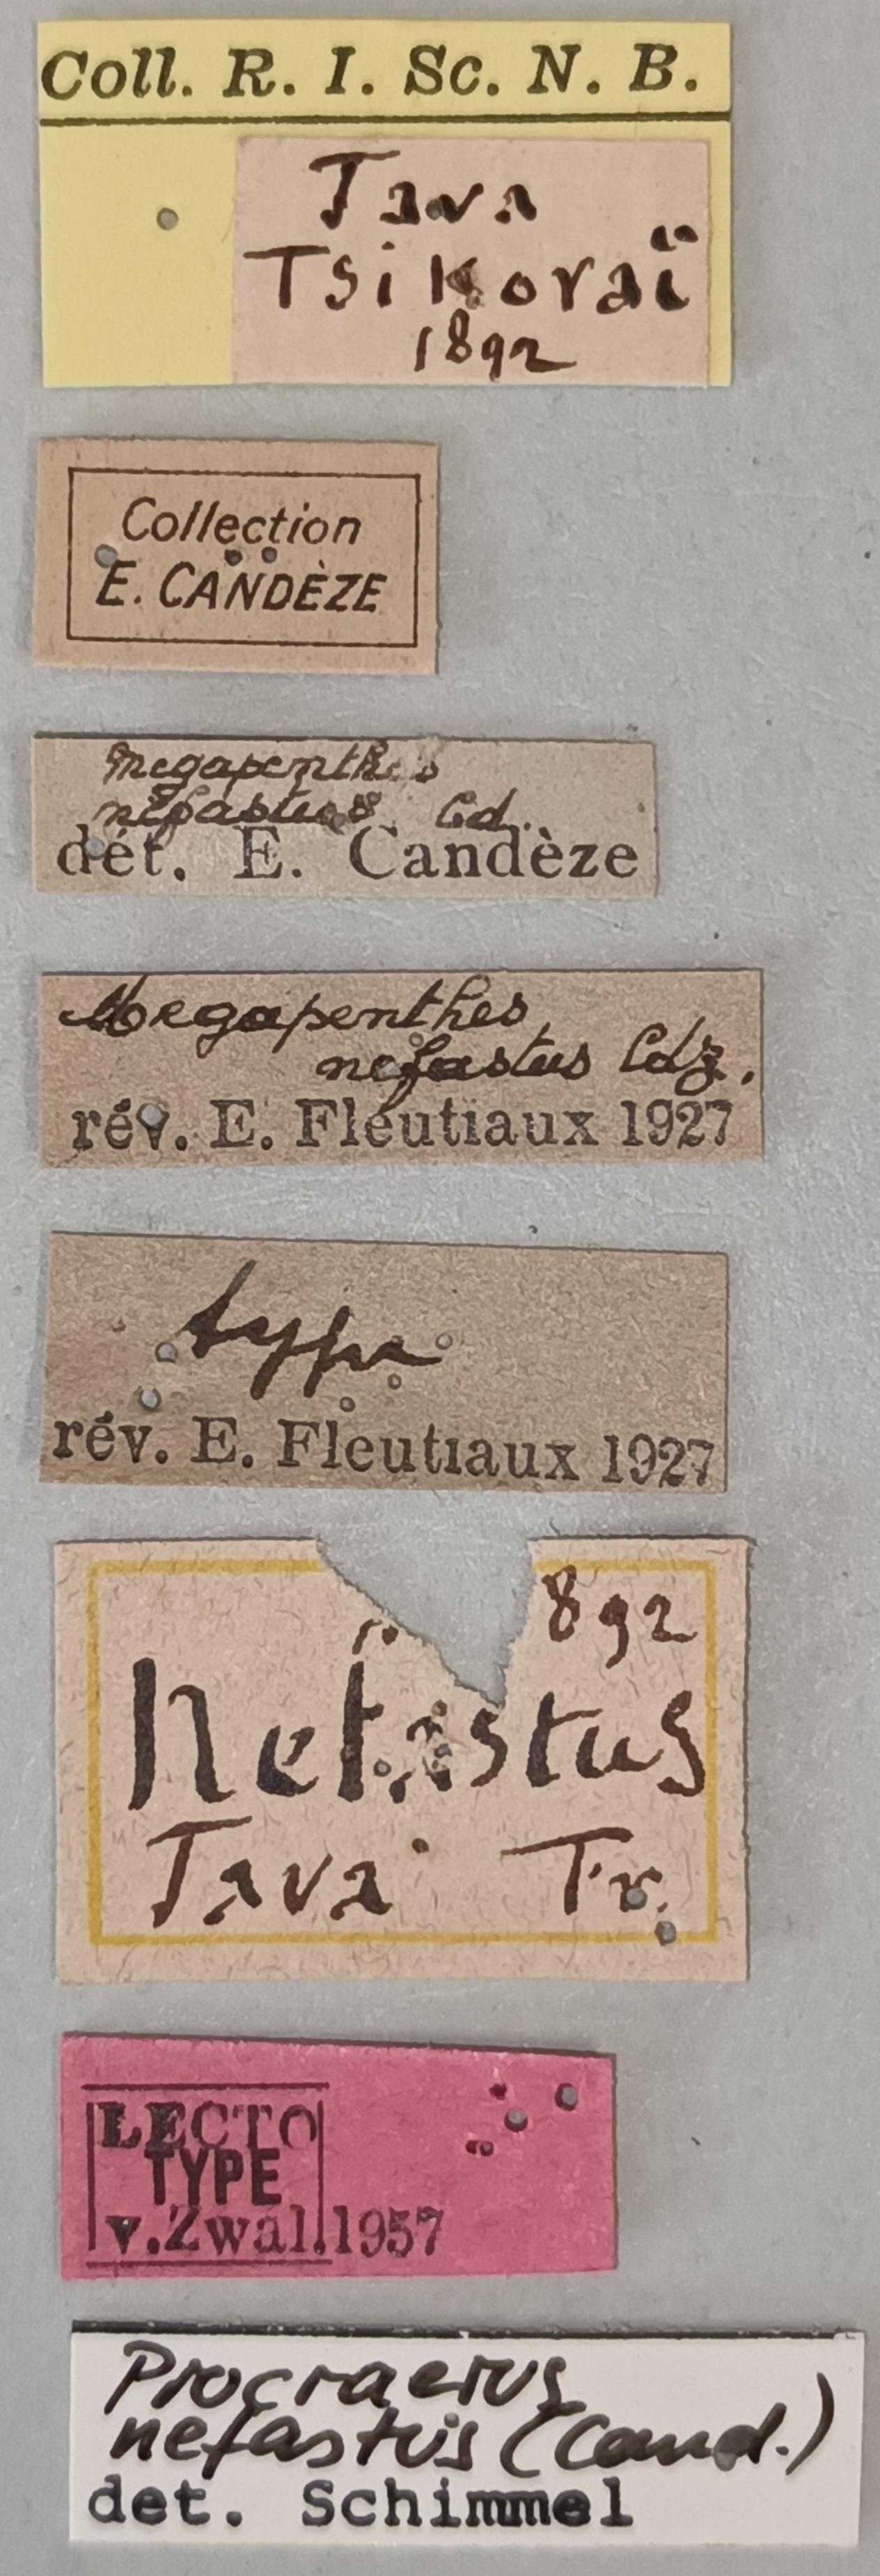 Coll. R. I. Sc. N. B.
Java
Tsikoraï
1892
Collection
E. CANDÈZE
Megapenthes
nefastus Cd.
dét. E. Candèze
Megapenthes
nefastus Cdz.
rév. E. Fleutiaux 1927
type
rév. E. Fleutiaux 1927
892
nefastus
Java Fr.
LECTO
TYPE
v.Zwal.1957
Procraerus
nefastus (Cand.)
det. Schimmel